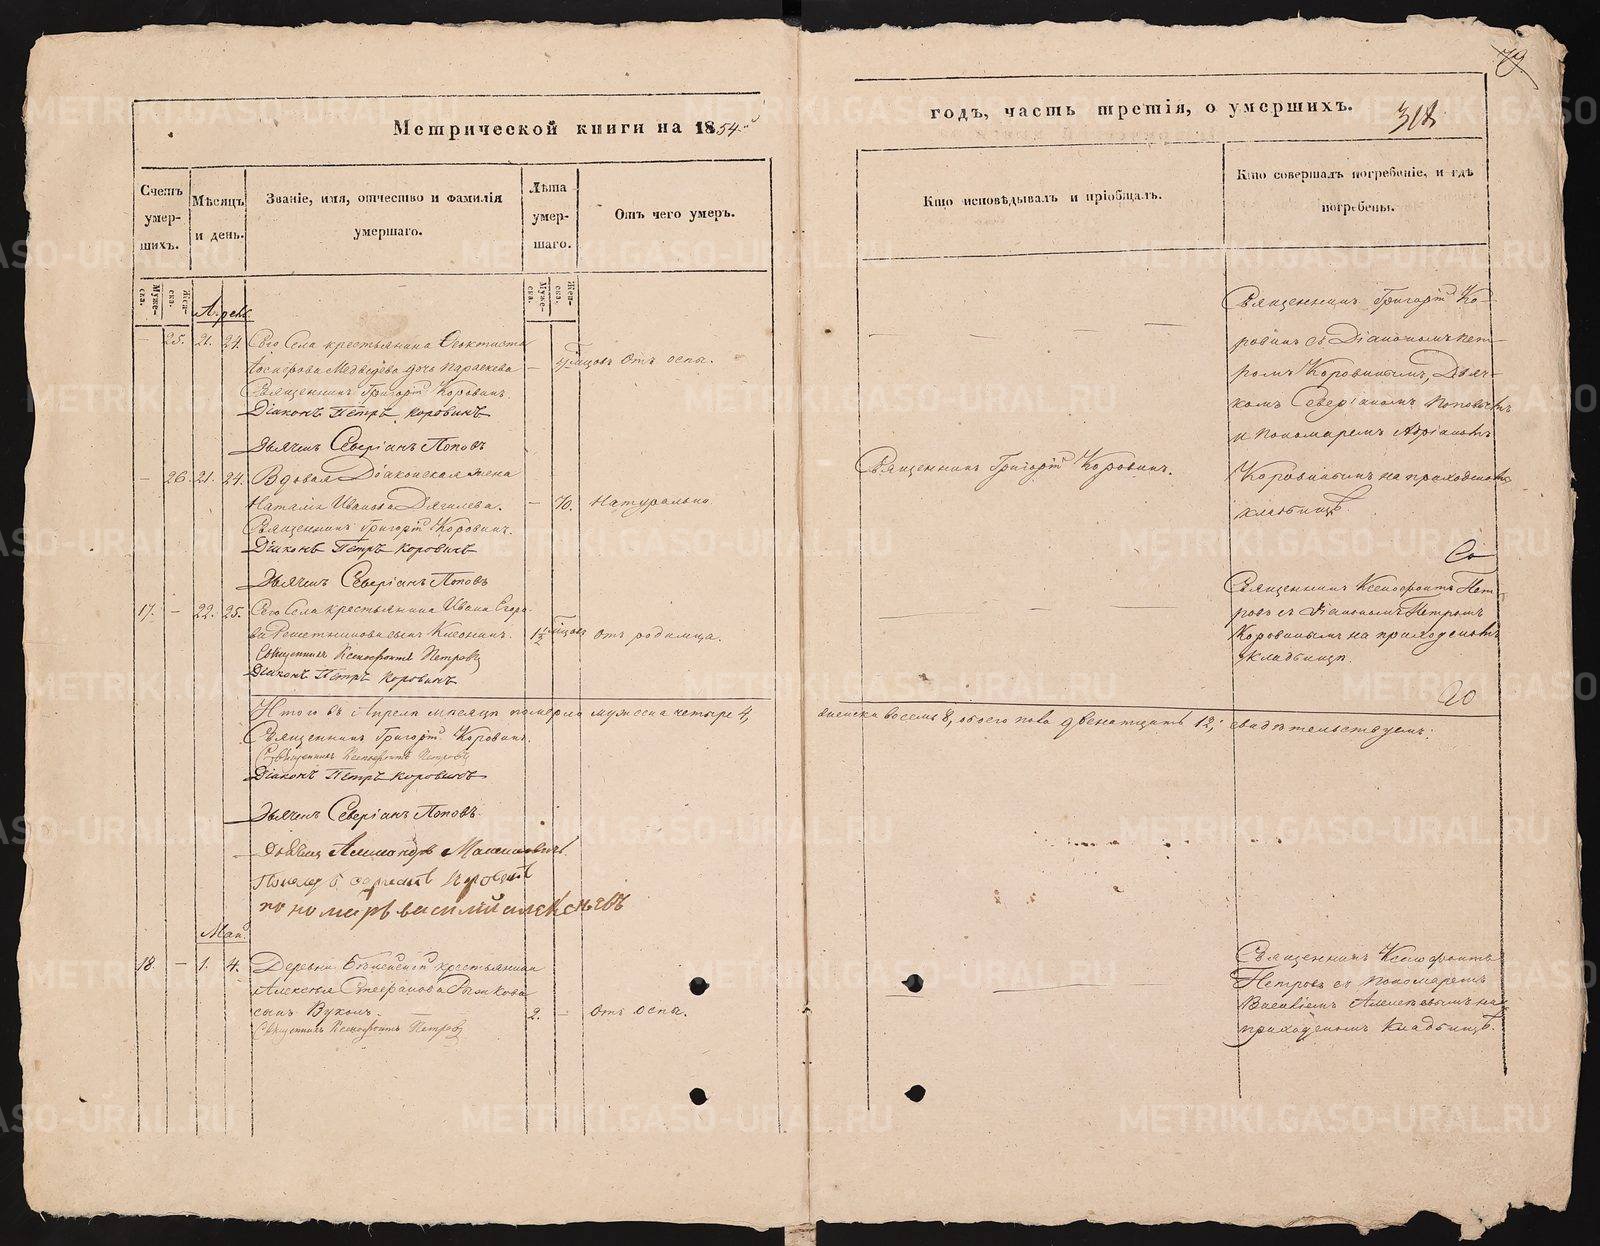 Метрической книги на 1854.
годъ, часть третія, о умершихъ.
318
79
Счетъ умер-шихъ.
Мѣсяцъ и день.
Званіе, имя, отчество и фамилія умершаго.
Лѣта умер-шаго.
Отъ чего умеръ.
Кто исповѣдывалъ и пріобщалъ.
Кто совершалъ погребеніе, и гдѣ погребены.
Муже-ска.
Жен-ска.
Муже-ска.
Жен-ска.
Апрель
— 25. 21. 24. Сего Села крестьянина Феоктиста
Іосифова Медвѣдева дочь Параскева — мцовъ Отъ оспы.
Священникъ Григорій Коровинъ.
Діаконъ Петръ Коровинъ
Дьячекъ Северіанъ Поповъ
Священникъ Григорій Ко-
ровинъ съ Діакономъ Пет-
ромъ Коровинымъ, Дьяч-
комъ Северіаномъ Поповымъ
и пономаремъ
Коровинымъ на приходскомъ
кладбищѣ.
— 26. 21. 24. Вдовая Діаконская жена
Наталія Иванова Дягилева. — 70. Натурально
Священникъ Григорій Коровинъ.
Священникъ Григорій Коровинъ.
Діаконъ Петръ Коровинъ
Дьячекъ Северіанъ Поповъ
17. — 22. 25. Сего Села крестьянина Ивана Егоро-
ва Решетникова сынъ 1½ мцовъ отъ родимца.
Священникъ Ксенофонтъ Петровъ
Діаконъ Петръ Коровинъ
Священникъ Ксенофонтъ Пет-
ровъ съ Діакономъ Петромъ
Коровинымъ на приходскомъ
кладбищѣ.
Итого въ Апрелѣ мѣсяцѣ померло мужеска четыре 4,
женска восемь 8, обоего пола двенатцать 12; свидѣтельствуемъ:
Священникъ Григорій Коровинъ.
Священникъ Ксенофонтъ Петровъ
Діаконъ Петръ Коровинъ
Дьячекъ Северіанъ Поповъ.
пономаръ василий алексѣевъ
Май
18. — 1. 4. Деревни крестьянина
Алексѣя Стефанова Рычкова
сынъ Вуколъ. 2. — Отъ Оспы.
Священникъ Ксенофонтъ Петровъ
Священникъ Ксенофонтъ
Петровъ съ Пономаремъ
Василіемъ Алексѣевымъ на
приходскомъ кладбищѣ.
METRIKI.GASO-URAL.RU